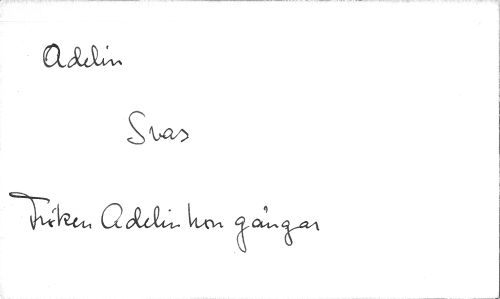 Adelin
Svas
Fröken Adelin hon gångar